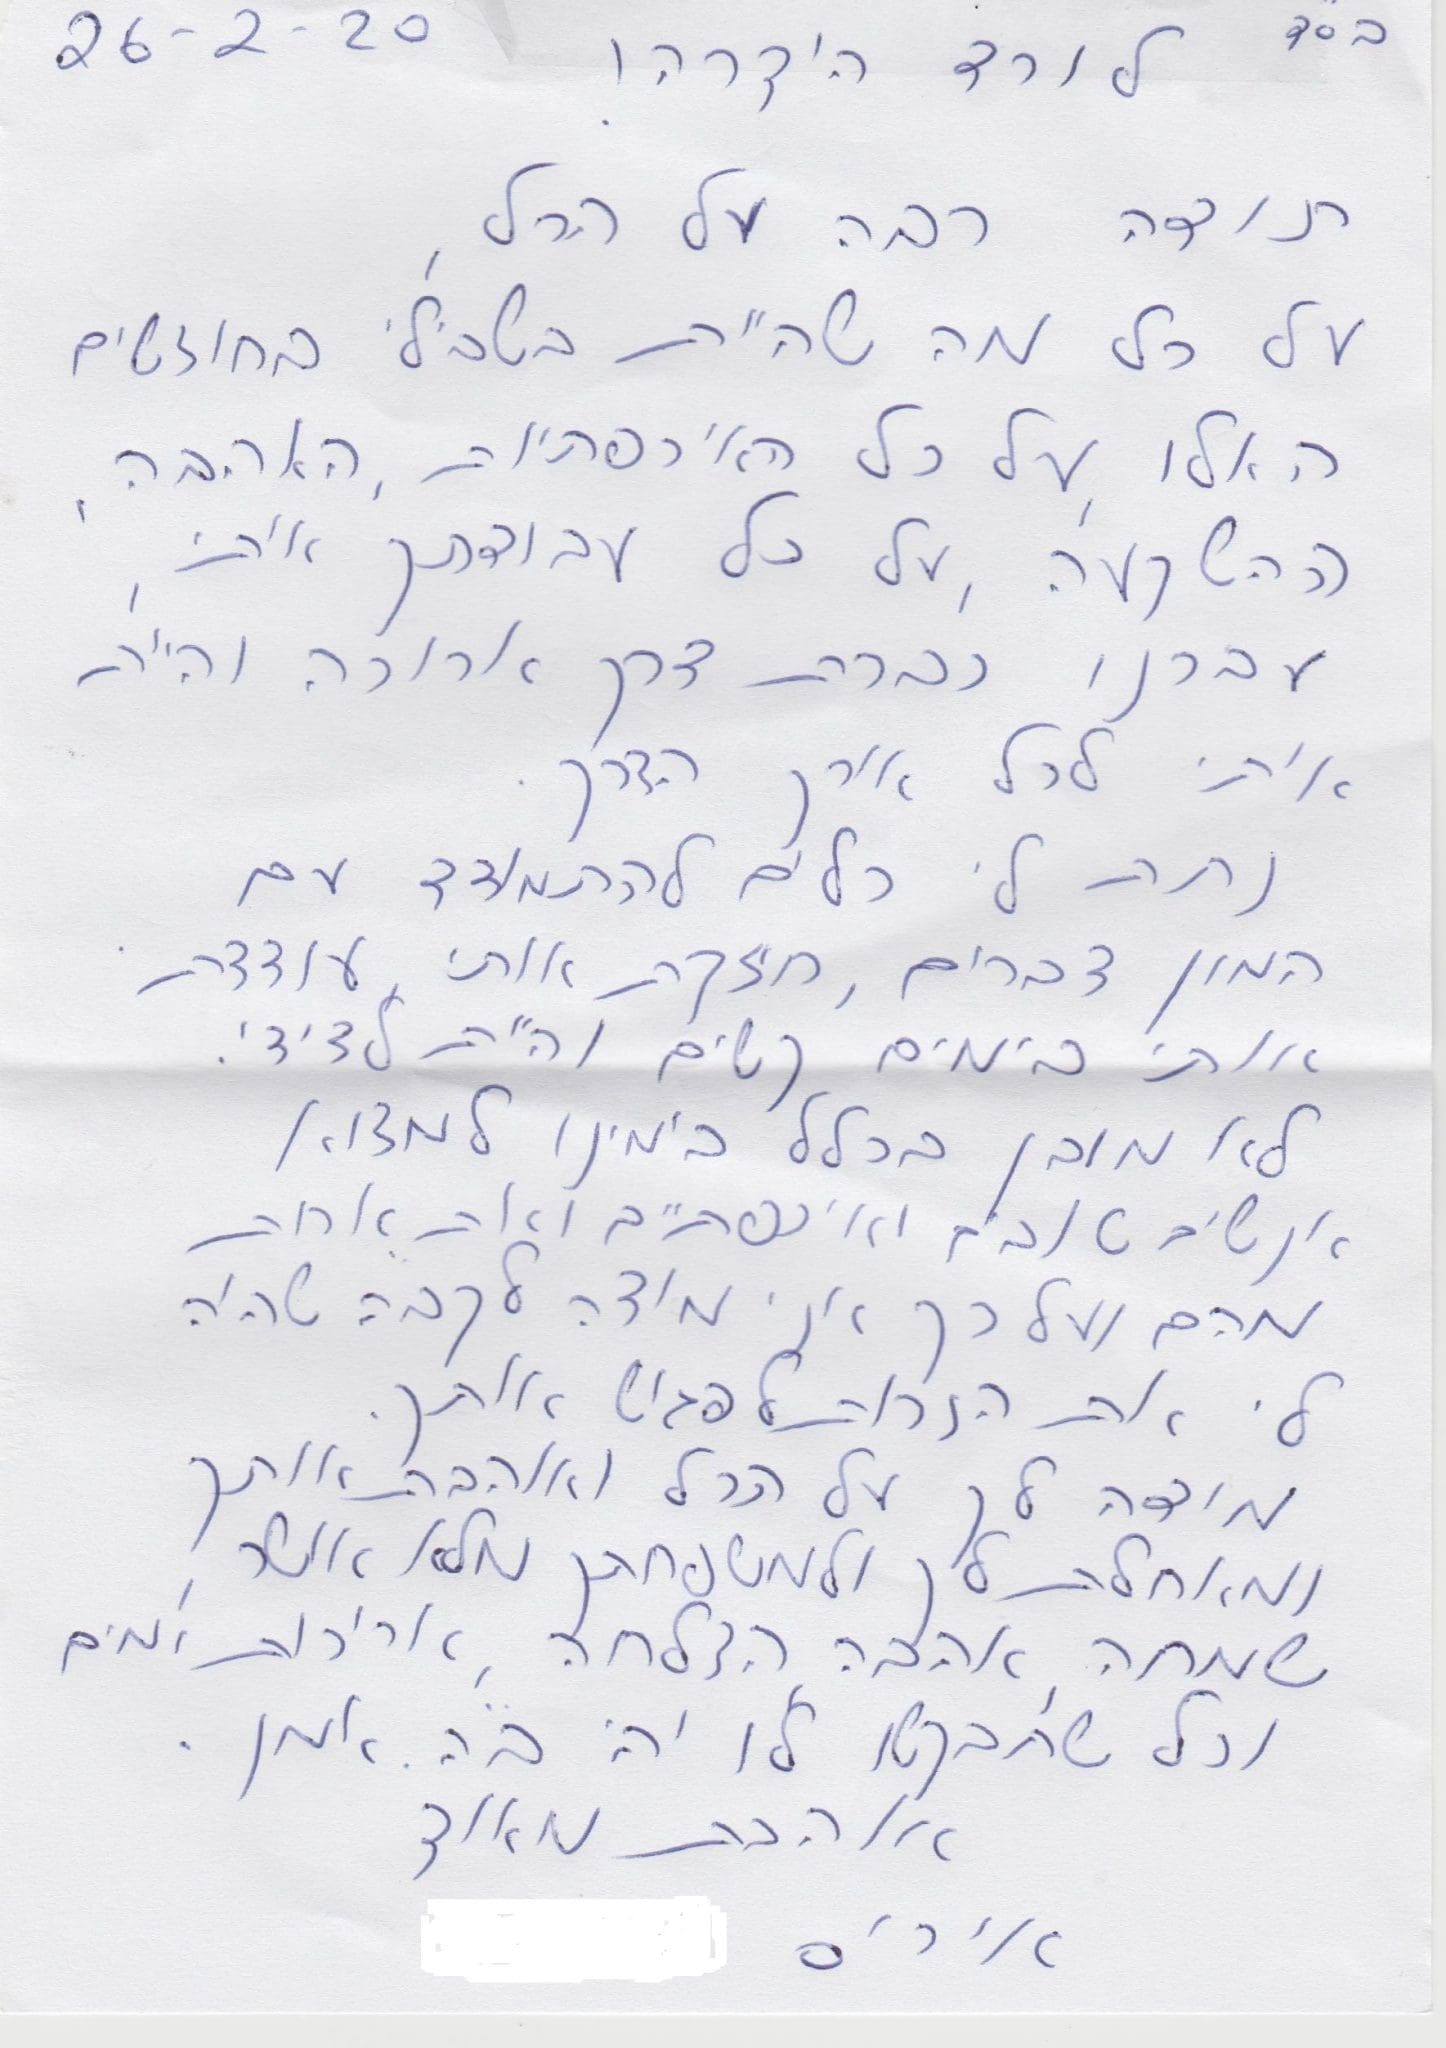 בס"ד
26-2-20
לורד היקרה!
תודה רבה על הכל,
על כל מה שהיית בשבילי בחודשים
האלו, על כל האיכפתיות, האהבה,
ההשקעה, על כל עבודתך איתי,
עברנו כברת דרך ארוכה והיית
איתי לכל אורך הדרך.
נתת לי כלים להתמודד עם
המון דברים, חיזקת אותי, עודדת
אותי בימים קשים והיית לצידי.
לא מובן בכלל בימינו למצוא
אנשים טובים ואיכפתיים ואת אחת
מהם ועל כך אני מודה לקב"ה שהיה
לי את הזכות לפגוש אותך.
מודה לך על הכל ואוהבת אותך
ומאחלת לך ולמשפחתך מלא אושר,
שמחה, אהבה הצלחה, אריכות ימים
וכל שתבקשו לו יהי ב"ה. אמן.
אוהבת מאוד
איריס